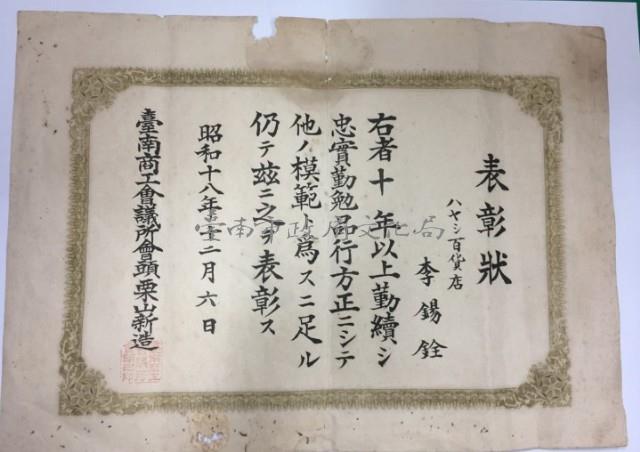 表彰狀
ハヤシ百貨店
李錫銓
右者十年以上勤續シ
忠實勤勉品行方正ニシテ
他ノ模範ト爲スニ足ル
仍テ玆ニ之ヲ表彰ス
昭和十八年十二月六日
臺南商工會議所會頭栗山新造
臺南市政府文化局